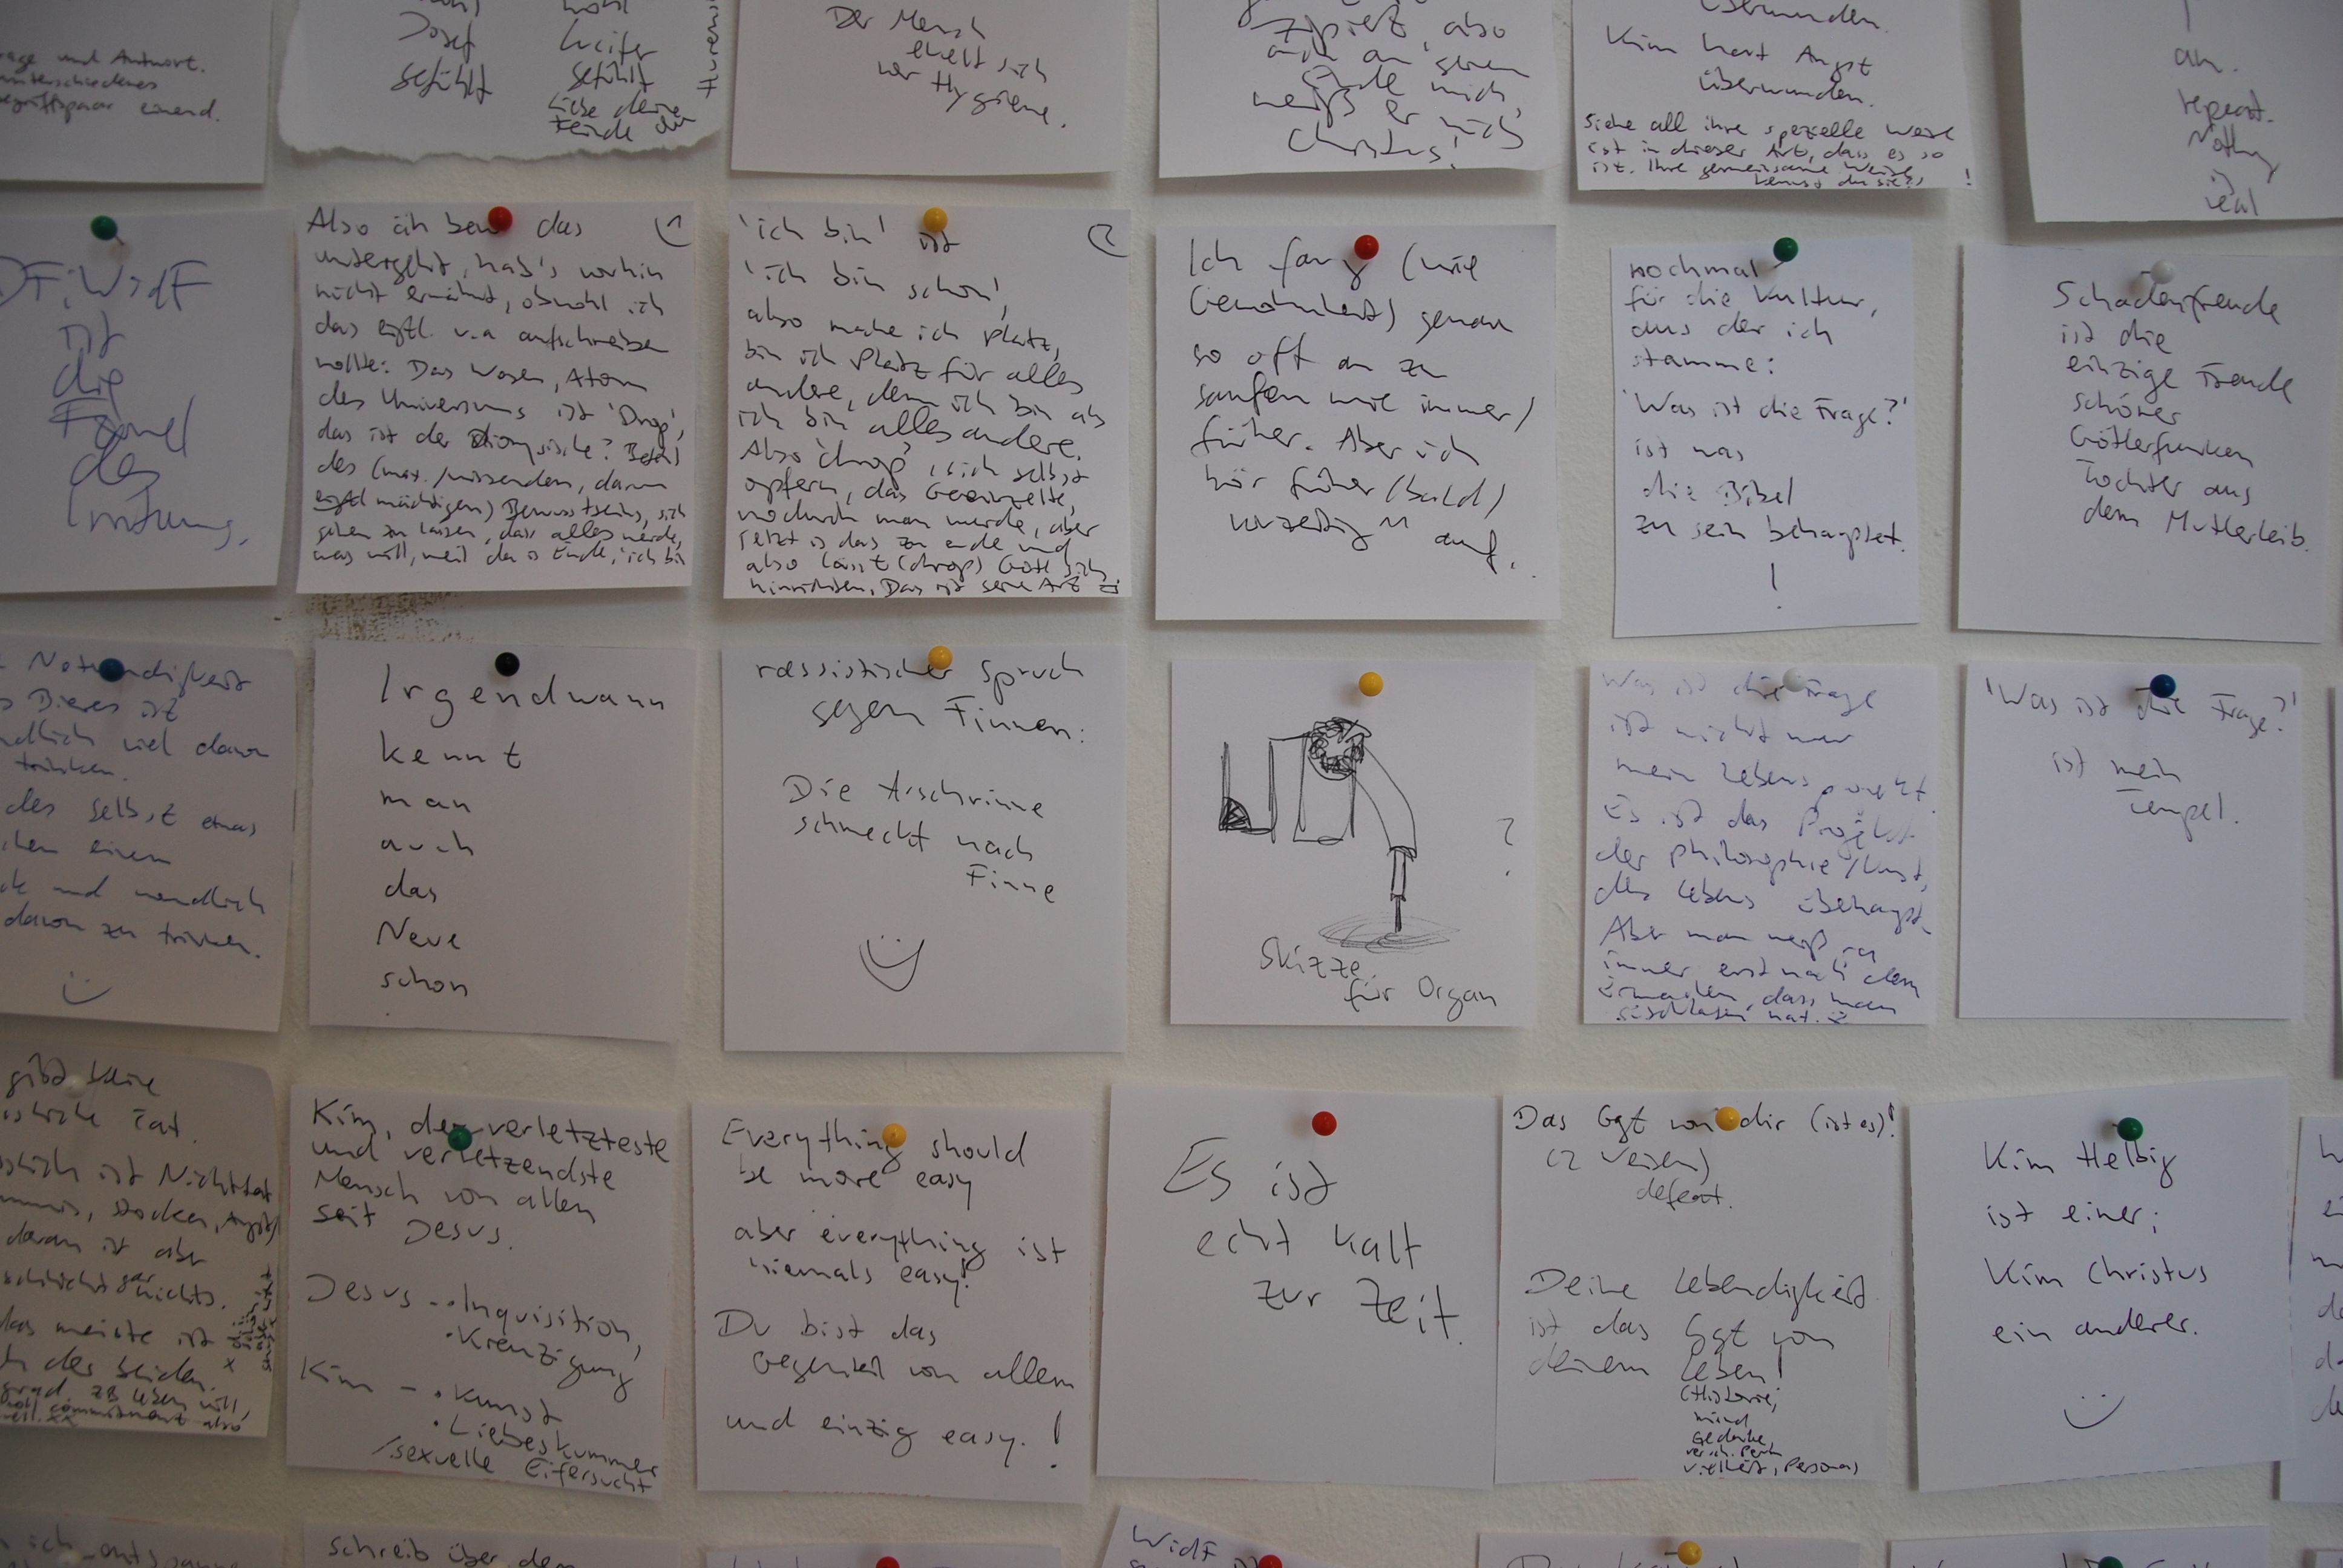 age und Antwort.
unterschiedenes
begriffspaar einend.
Josef
gefühlt
wohl
Lucifer
gefühlt
Liebe deine
Feinde
Hurens
Der Mensch
ekelt sich
vor Hygiene.
zipiert, also
auch an
Stelle mich,
weiß er mich
Christus!
überwunden.
Kim hart Angst
überwunden.
Siehe all ihre spezielle Weise
ist in dieser Art, dass es so
ist. Ihre gemeinsame Weise
kennst du sie? !
an.
repeat.
Nothing
is
real
DFiWidF
ist
die
Formel
des
Irrtums.
Also äh bevor das
untergeht, hab's vorhin
nicht erwähnt, obwohl ich
das eigtl. v.a aufschreiben
wollte: Das Wesen, Atom
des Universums ist 'Drop',
das ist der Dionysische? Befehl
des (max./wissenden, darum
eigtl mächtigen) Bewusstseins, sich
gehen zu lassen, dass alles werde,
was will, weil da is Ende, 'ich bin
'ich bin' ist
'ich bin schon',
also mache ich Platz,
bin ich Platz für alles
andere, denn ich bin als
ich bin alles andere.
Also 'drop', sich selbst
opfern, das Geeinzelte,
wodurch man werde, aber
jetzt is das zu ende und
also lässt (drop) Gott sich
hinrichten. Das ist seine Art
Ich fang (wie
Gewohnheit) genau
so oft an zu
saufen wie immer/
früher. Aber ich
hör früher (bald)
vorzeitig auf.
nochmal
für die Kultur,
aus der ich
stamme:
'Was ist die Frage?'
ist was
die Bibel
zu sein behauptet.
!
Schadenfreude
ist die
einzige Freude
schöner
Götterfunken
Tochter aus
dem Mutterleib.
Notwendigkeit
Bieres ist
endlich viel davon
trinken.
des selbst etwas
einem
und unendlich
davon zu trinken.
Irgendwann
kennt
man
auch
das
Neue
schon
.
rassistischer Spruch
gegen Finnen:
Die Arschrinne
schmeckt nach
Finne
?
Skizze
für Organ
Was ist die Frage
ist nicht nur
mein Lebensprojekt.
Es ist das Projekt
der Philosophie/Kunst,
des Lebens überhaupt.
Aber man weiß ja
immer erst nach dem
Erwachen, dass man
geschlafen hat.
'Was ist die Frage?'
ist mein
Tempel.
gibt keine
Tat.
ist Nichttat
stocken, Angst)
daran ist aber
schlicht gar nichts.
das meiste ist
der beiden.
grad. zB Leben will,
commitment also
Kim, der verletzteste
und verletzendste
Mensch von allen
seit Jesus.
Jesus - • Inquisition,
• Kreuzigung
Kim - • Kunst
• Liebeskummer
/sexuelle Eifersucht
Everything should
be more easy
aber everything ist
niemals easy!
Du bist das
Gegenteil von allem
und einzig easy. !
Es ist
echt kalt
zur Zeit.
Das Ggt von dir (ist es)!
(2 Weisen)
defeat.
Deine Lebendigkeit
ist das Ggt von
deinem Leben!
(Historie,
mind
Gedanke
Vielheit, Personas)
Kim Helbig
ist einer;
Kim Christus
ein anderer.
schreib über den
WidF